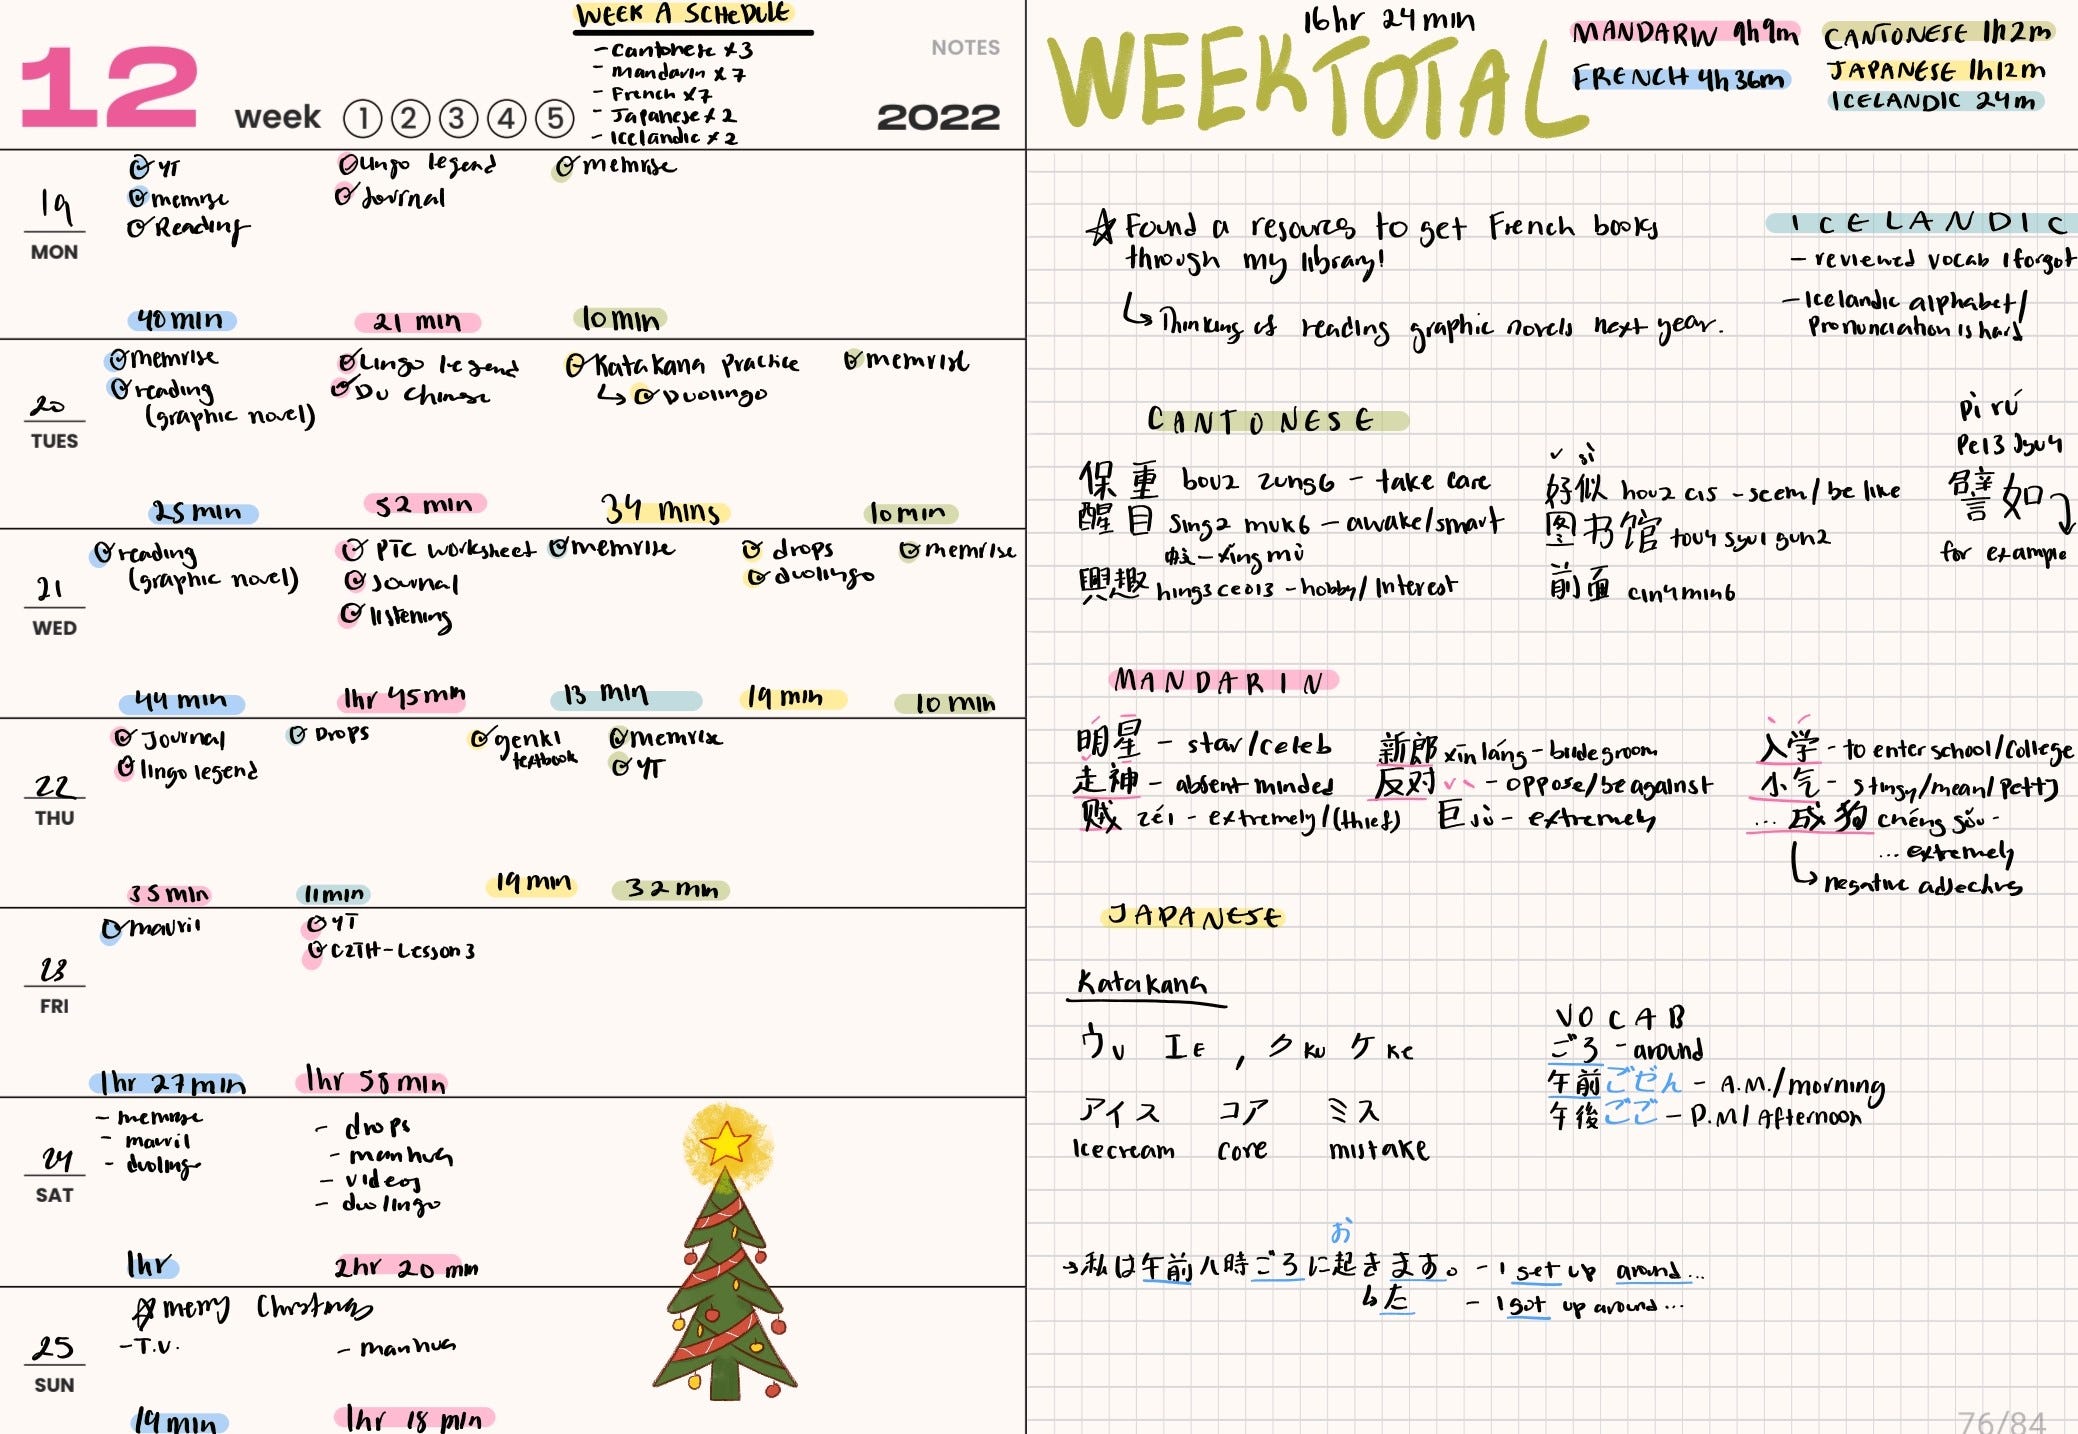 12
week 1 2 3 4 5
WEEK A SCHEDULE
- Cantonese x3
- Mandarin x7
- French x7
- Japanese x2
- Icelandic x2
NOTES
2022
19
MON
YT
memrise
Reading
40 min
Lingo legend
Journal
21 min
memrise
10 min
20
TUES
memrise
reading
(graphic novel)
25 min
Lingo legend
Du Chinese
52 min
Katakana Practice
↳ Duolingo
34 mins
memrise
10 min
21
WED
reading
(graphic novel)
44 min
PTC worksheet
Journal
listening
1hr 45 min
memrise
13 min
drops
duolingo
19 min
memrise
10 min
22
THU
Journal
lingo legend
35 min
Drops
11 min
genki
textbook
19 min
memrise
YT
32 min
23
FRI
mauril
1hr 27 min
YT
CZTH - Lesson 3
1hr 58 min
24
SAT
- memrise
- mauril
- duolingo
1hr
- drops
- manhua
- videos
- duolingo
2hr 20 min
25
SUN
☆ merry Christmas
- T.V.
19 min
- manhua
1hr 18 min
WEEK TOTAL
16hr 24min
MANDARIN 9h 9m
FRENCH 4h 36m
CANTONESE 1h 2m
JAPANESE 1h 12m
ICELANDIC 24m
☆ Found a resource to get French books
through my library!
↳ Thinking of reading graphic novels next year.
ICELANDIC
- reviewed vocab I forgot
- Icelandic alphabet/
Pronunciation is hard
CANTONESE
保重 bou2 zung6 - take care
醒目 sing2 muk6 - awake/smart
xǐng mù
興趣 hing3 ceoi3 - hobby/Interest
sì
好似 hou2 ci5 - seem/be like
图书馆 tou4 syu1 gun2
前面 cin4 min6
pì rú
pei3 jyu4
譬如
for example
MANDARIN
明星 - star/celeb
走神 - absent minded
贼 zéi - extremely/(thief)
新郎 xīn láng - bridegroom
反对 - oppose/be against
巨 jù - extremely
入学 - to enter school/College
小气 - stingy/mean/petty
... 成狗 chéng gǒu -
... extremely
↳ negative adjectives
JAPANESE
Katakana
ウ U エ E , ク ku ケ ke
アイス コア ミス
Icecream core mistake
VOCAB
ごろ - around
午前 ごぜん - A.M./morning
午後 ごご - P.M/Afternoon
お
→ 私は午前八時ごろに起きます。 - I get up around...
した - I got up around...
76/84